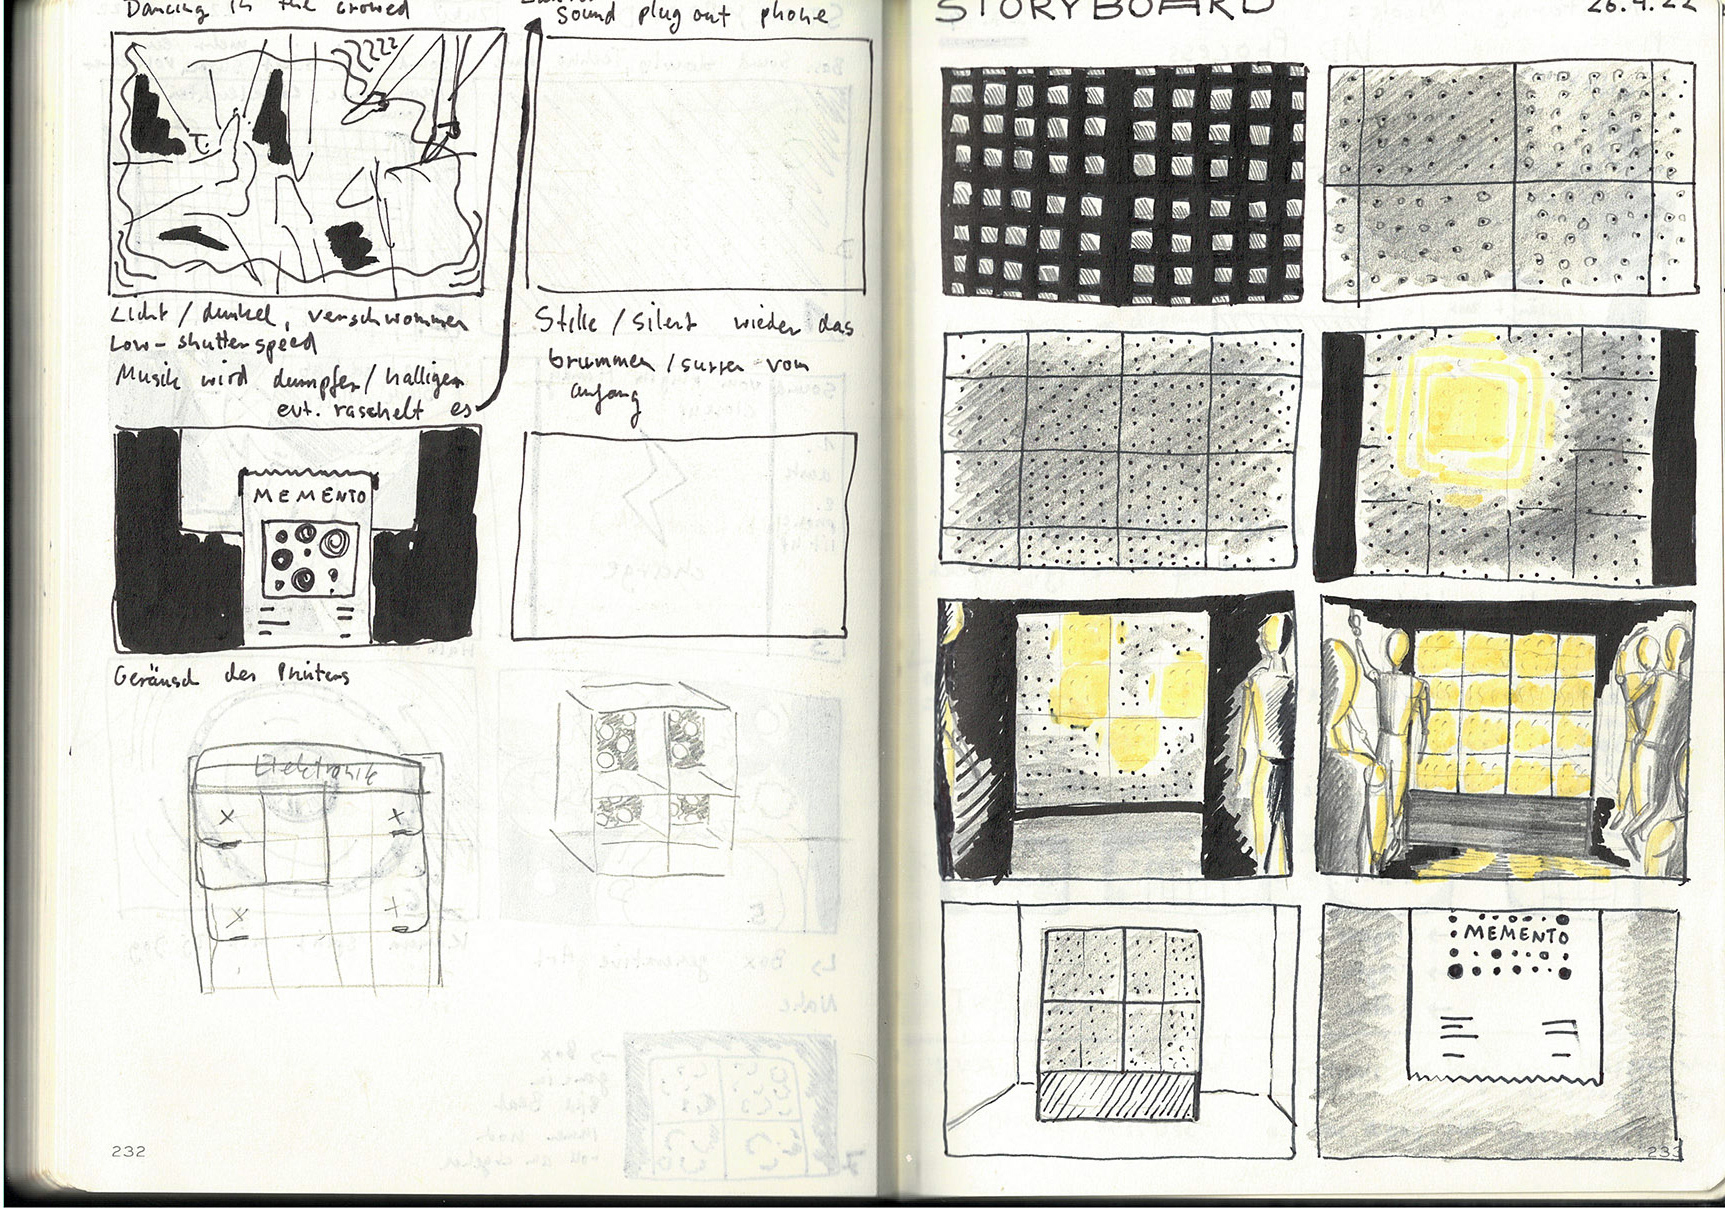 Dancing in the crowed
Sound plug out phone
Licht / dunkel, verschwommen
Low-shutterspeed
Musik wird dumpfer / halliger
evt. raschelt es
Stille / silent wieder das
brummen / surren vom
anfang
MEMENTO
Geräusch des Printers
Elektronik
232
STORYBOARD
26.4.22
MEMENTO
233